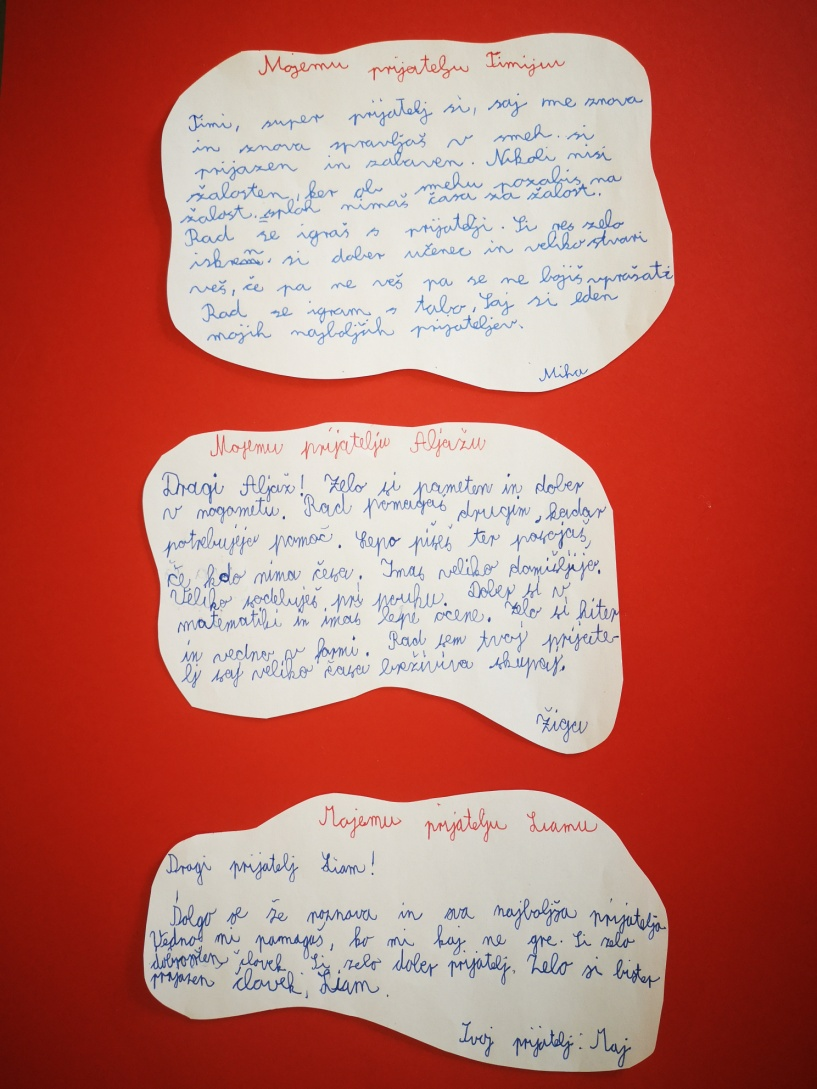 Mojemu prijatelju Timiju
Timi, super prijatelj si, saj me znova
in znova spravljaš v smeh. si
prijazen in zabaven. Nikoli nisi
žalosten, ker ob smehu pozabiš na
žalost. sploh nimaš časa za žalost.
Rad se igraš s prijatelji. Si res zelo
iskren. si dober učenec in veliko stvari
veš, če pa ne veš pa se ne bojiš vprašati
Rad se igram s tabo, Saj si eden
mojih najboljših prijateljev.
Miha
Mojemu prijatelju Aljažu
Dragi Aljaž! Zelo si pameten in dober
v nogometu. Rad pomagaš drugim, kadar
potrebujejo pomoč. Lepo pišeš ter posojaš,
Če kdo nima česa. Imaš veliko domišljijo.
Veliko sodeluješ pri pouhu. Dober si v
matematiki in imaš lepe ocene. Zelo si hiter
in vedno v formi. Rad sem tvoj prijate-
lj saj veliko časa preživiva skupaj.
Žiga
Mojemu prijatelju Liamu
Dragi prijatelj Liam!
Dolgo se že poznava in sva najboljša prijatelja
Vedno mi pomagaš, ko mi kaj ne gre. Si zelo
dobrosrčen človek. Si zelo dober prijatelj. Zelo si bister
prijazen človek, Liam.
Tvoj prijatelj: Maj